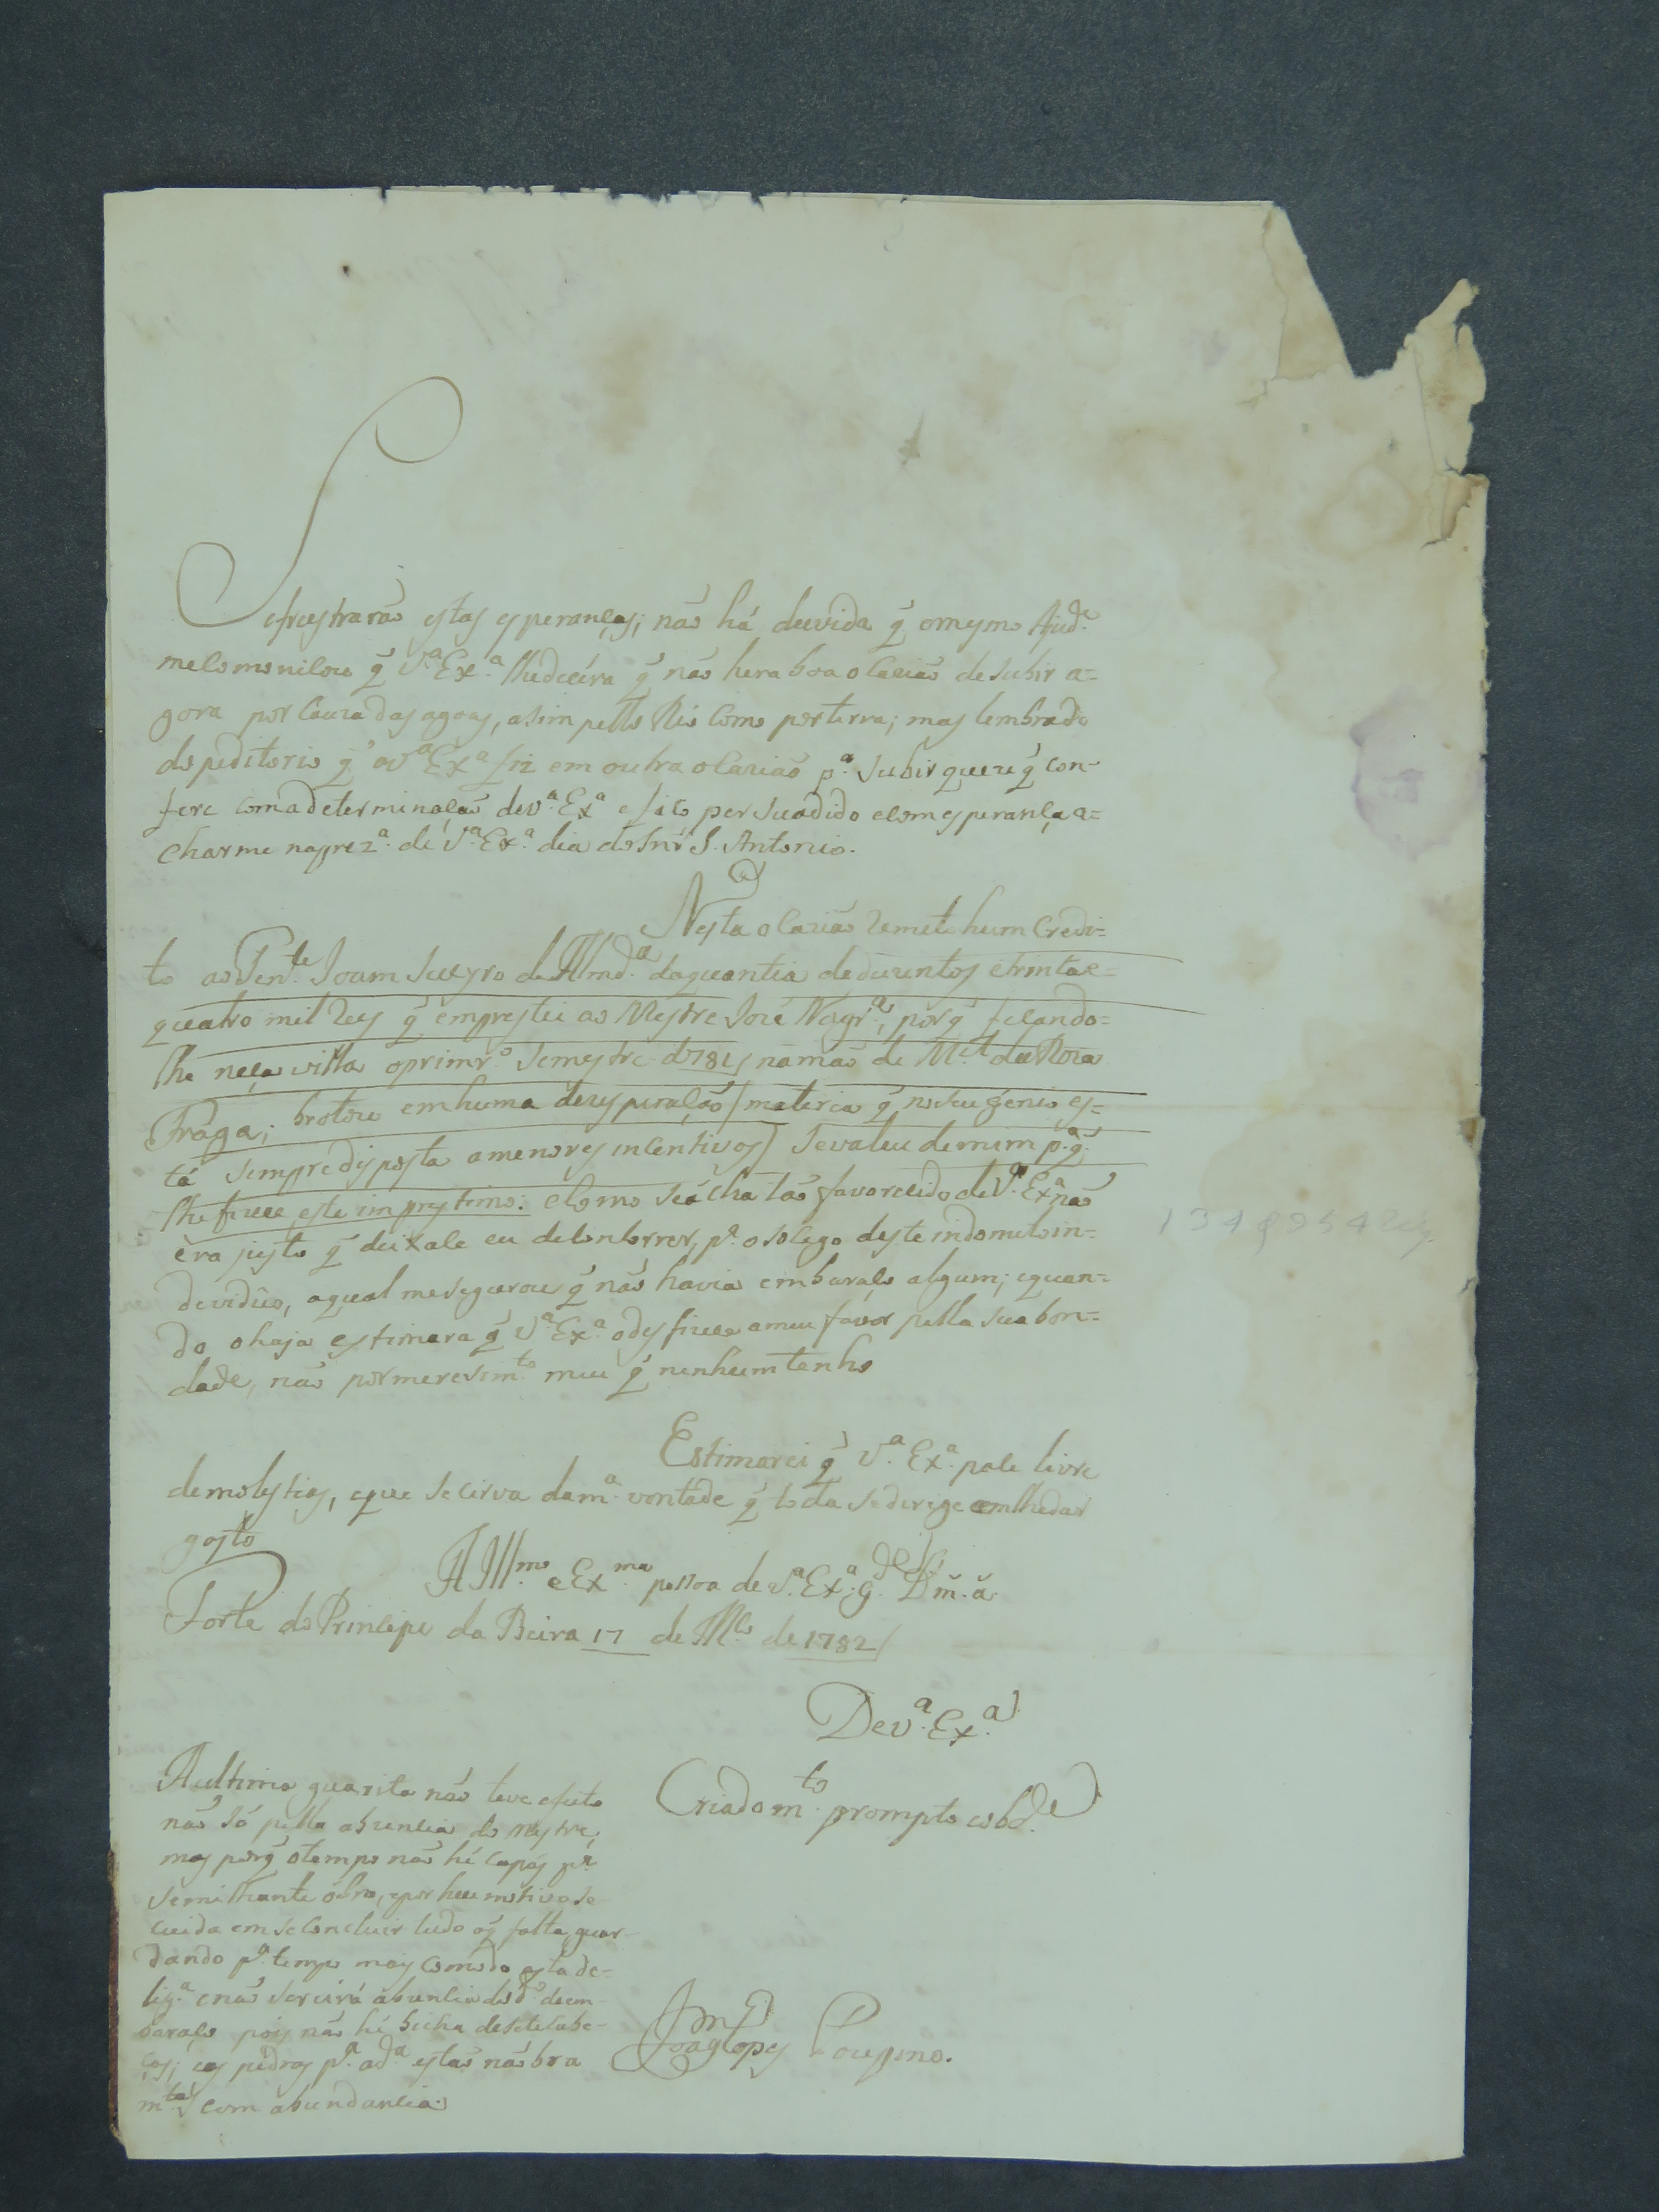 Sefrustrarão estas esperanças; não há duvida q̃ omesmo Ajud.e
me comonicou q̃ V.a Ex.a lhe dicéra q̃ não hera boa ocazião de subir a=
gora por cauza das agoas, asim pello Rio como por terra; mas lembrado
do peditorio q̃ a V.a Ex.a fiz em outra ocazião p.a subir quero q̃ con-
fere com a determinação de V.a Ex.a e fico persuadido e com esperança a=
charme na prez.a de V.a Ex.a dia do Snr̃ S. Antonio.
Nesta ocazião remeto hum Credi=
to ao Ten.te Joam Sueyro de Almd.a da quantia de duzentos e trinta e=
quatro mil reis q̃ emprestei ao Mestre José Nogr.a, porq̃ ficando=
lhe nessa villa o primr.o semestre d 781 / na mão de M.el da Roza
Fraga; brotou em huma dezesperação / materia q̃ no seu genio es=
tá sempre disposta a menores incentivos) se valeu de mim p.a q̃
lhe fizese este imprestimo: e como se ácha tão favorecido de V.a Ex.a não
éra justo q̃ deixase eu de concorrer, p.a o socego deste indomito in=
dividuo, a qual me segurou q̃ não havia embaraço algum; e quan=
do o haja estimara q̃ V.a Ex.a o desfizese a meu favor pella sua bon=
dade, não por meresim.to meu q̃ nenhum tenho
Estimarei q̃ V.a Ex.a pase livre
de molestias, e que se cirva da m.a vontade q̃ toda se derege em lhe dar
gosto
A Ill.mo e Ex.ma pessoa de V.a Ex.a g.de Ds̃ m.s ã.
Forte do Principe da Beira 17 de M.ço de 1782 /
De V.a Ex.a
Criado m.to prompto e ob.de
Joaq Lopes Poupino.
A ultima guarita não teve efeito
não só pella absencia do Mestre,
mas porq̃ o tempo não hé capás p.a
semilhante óbra, e por hese motivo se
cuida em se concluir tudo o q̃ falta, guar-
dando p.a tempo mais comodo esta de-
lig.a e não servirá absencia do d.o de em-
baraço pois não hé bicha de sete cabe-
ças; e as pedras p.a a d.a estão na óbra
m.tas e com abundancia.